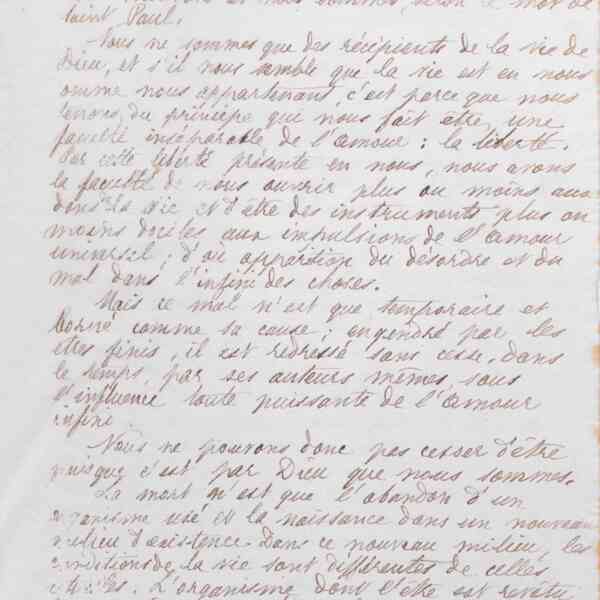 nous sommes, selon le mot de
Saint Paul.
Nous ne sommes que des récipients de la vie de
Dieu, et s'il nous semble que la vie est en nous
comme nous appartenant, c'est parce que nous
tenons, du principe qui nous fait être, une
faculté inséparable de l'amour : la liberté.
Par cette liberté présente en nous, nous avons
la faculté de nous ouvrir plus ou moins aux
dons de la vie et d'être des instruments plus ou
moins dociles aux impulsions de l'amour
universel ; d'où apparition du désordre et du
mal dans l'infini des choses.
Mais ce mal n'est que temporaire et
borné comme sa cause ; engendré par les
êtres finis, il est redressé sans cesse, dans
le temps, par ses auteurs mêmes, sous
l'influence toute puissante de l'amour
infini
Nous ne pouvons donc pas cesser d'être
puisque c'est par Dieu que nous sommes.
La mort n'est que l'abandon d'un
organisme usé et la naissance dans un nouveau
milieu d'existence. Dans ce nouveau milieu, les
conditions de la vie sont différentes de celles
L'organisme dont l'être est revêtu